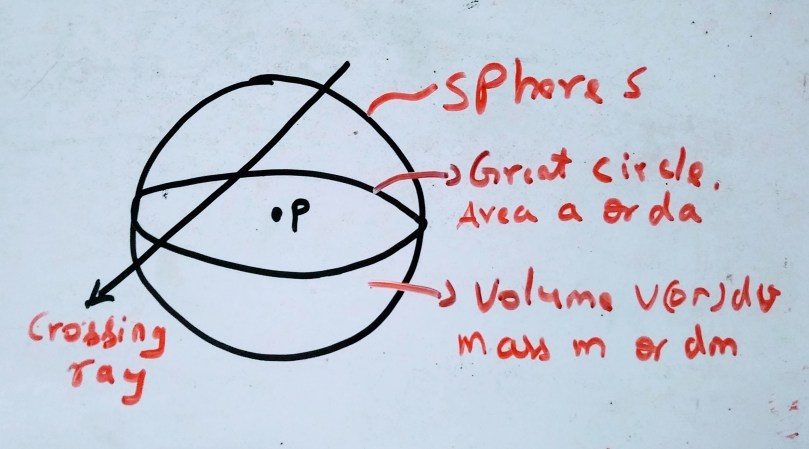 sphere s
Great circle.
Area a or da
.P
Volume V(or)dv
mass m or dm
Crossing
ray